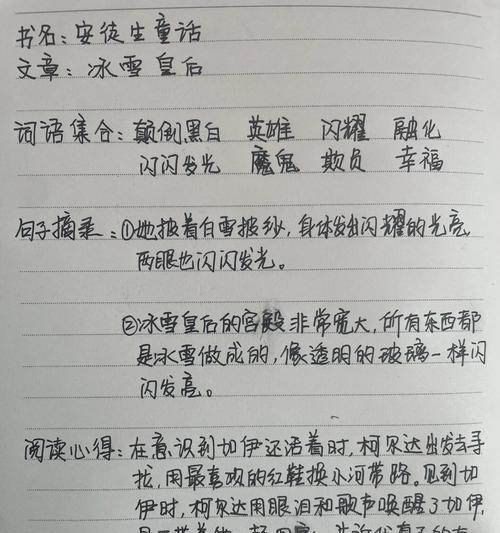 书名：安徒生童话
文章：冰雪皇后
词语集合：颠倒黑白 英雄 闪耀 融化
闪闪发光 魔鬼 欺负 幸福
句子摘录：①她披着白雪披纱，身体发出闪耀的光亮
两眼也闪闪发光。
②冰雪皇后的宫殿非常宽大，所有东西都
是冰雪做成的，像透明的玻璃一样闪
闪发亮。
阅读心得：在意识到加伊还活着时，柯尔达出发去寻
找，用最喜欢的红鞋换小河带路。见到加
伊时，柯尔达用眼泪和歌声唤醒了加伊，